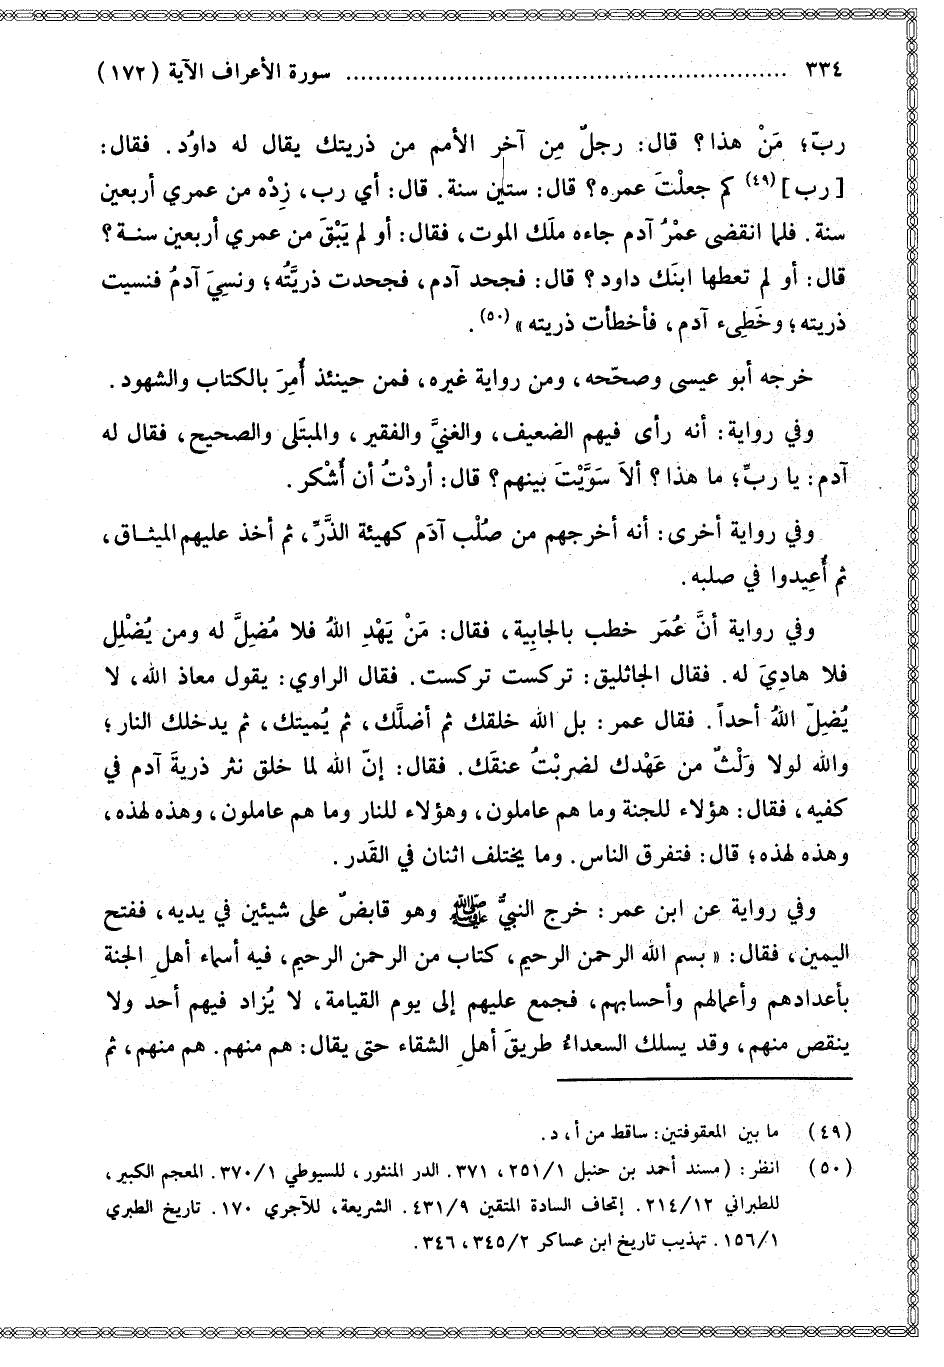 ٣٣٤ ............................................................ سورة الأعراف الآية (١٧٢)
ربّ؛ مَنْ هذا؟ قال: رجلٌ مِن آخر الأمم من ذريتك يقال له داوُد. فقال:
[رب](٤٩) كم جعلْتَ عمره؟ قال: ستين سنة. قال: أي رب، زِدْه من عمري أربعين
سنة. فلما انقضى عمْرُ آدم جاءه ملَك الموت، فقال: أو لم يَبْقَ من عمري أربعين سنة؟
قال: أو لم تعطها ابنَك داود؟ قال: فجحد آدم، فجحدت ذريَّتُه؛ ونسِيَ آدمُ فنسيت
ذريته؛ وخَطِىء آدم، فأخطأت ذريته»(٥٠).
خرجه أبو عيسى وصحّحه، ومن رواية غيره، فمن حينئذ أُمِرَ بالكتاب والشهود.
وفي رواية: أنه رأى فيهم الضعيف، والغنيَّ والفقير، والمبتَلى والصحيح، فقال له
آدم: يا ربِّ؛ ما هذا؟ ألاَ سَوَّيْتَ بينهم؟ قال: أردْتُ أن أُشْكر.
وفي رواية أخرى: أنه أخرجهم من صُلْب آدَم كهيئة الذَّرِّ، ثم أخذ عليهم الميثاق،
ثم أُعِيدوا في صلبه.
وفي رواية أنَّ عُمَرَ خطب بالجابِية، فقال: مَنْ يَهْدِ اللهُ فلا مُضِلَّ له ومن يُضْلِل
فلا هادِيَ له. فقال الجاثليق: تركست تركست. فقال الراوي: يقول معاذ الله، لا
يُضِلّ اللهُ أحداً. فقال عمر: بل الله خلقك ثم أضلَّك، ثم يُميتك، ثم يدخلك النار؛
والله لولا وَلْثٌ من عَهْدك لضربْتُ عنقَك. فقال: إنّ الله لما خلق نثر ذريةَ آدم في
كفيه، فقال: هؤلاء للجنة وما هم عاملون، وهؤلاء للنار وما هم عاملون، وهذه لهذه،
وهذه لهذه؛ قال: فتفرق الناس. وما يختلف اثنان في القَدر.
وفي رواية عن ابن عمر: خرج النبيُّ ﷺ وهو قابضٌ على شيئين في يديه، ففتح
اليمين، فقال: «بسم الله الرحمن الرحيم، كتاب من الرحمن الرحيم، فيه أسماء أهلِ الجنة
بأعدادهم وأعمالهم وأحسابهم، فجمع عليهم إلى يوم القيامة، لا يُزاد فيهم أحد ولا
ينقص منهم، وقد يسلك السعداءُ طريقَ أهلِ الشقاء حتى يقال: هم منهم. هم منهم، ثم
(٤٩) ما بين المعقوفتين: ساقط من أ، د.
(٥٠) انظر: (مسند أحمد بن حنبل ٢٥١/١، ٣٧١. الدر المنثور، للسيوطي ٣٧٠/١. المعجم الكبير،
للطبراني ٢١٤/١٢. إتحاف السادة المتقين ٤٣١/٩. الشريعة، للآجري ١٧٠. تاريخ الطبري
١٥٦/١. تهذيب تاريخ ابن عساكر ٣٤٥/٢، ٣٤٦.